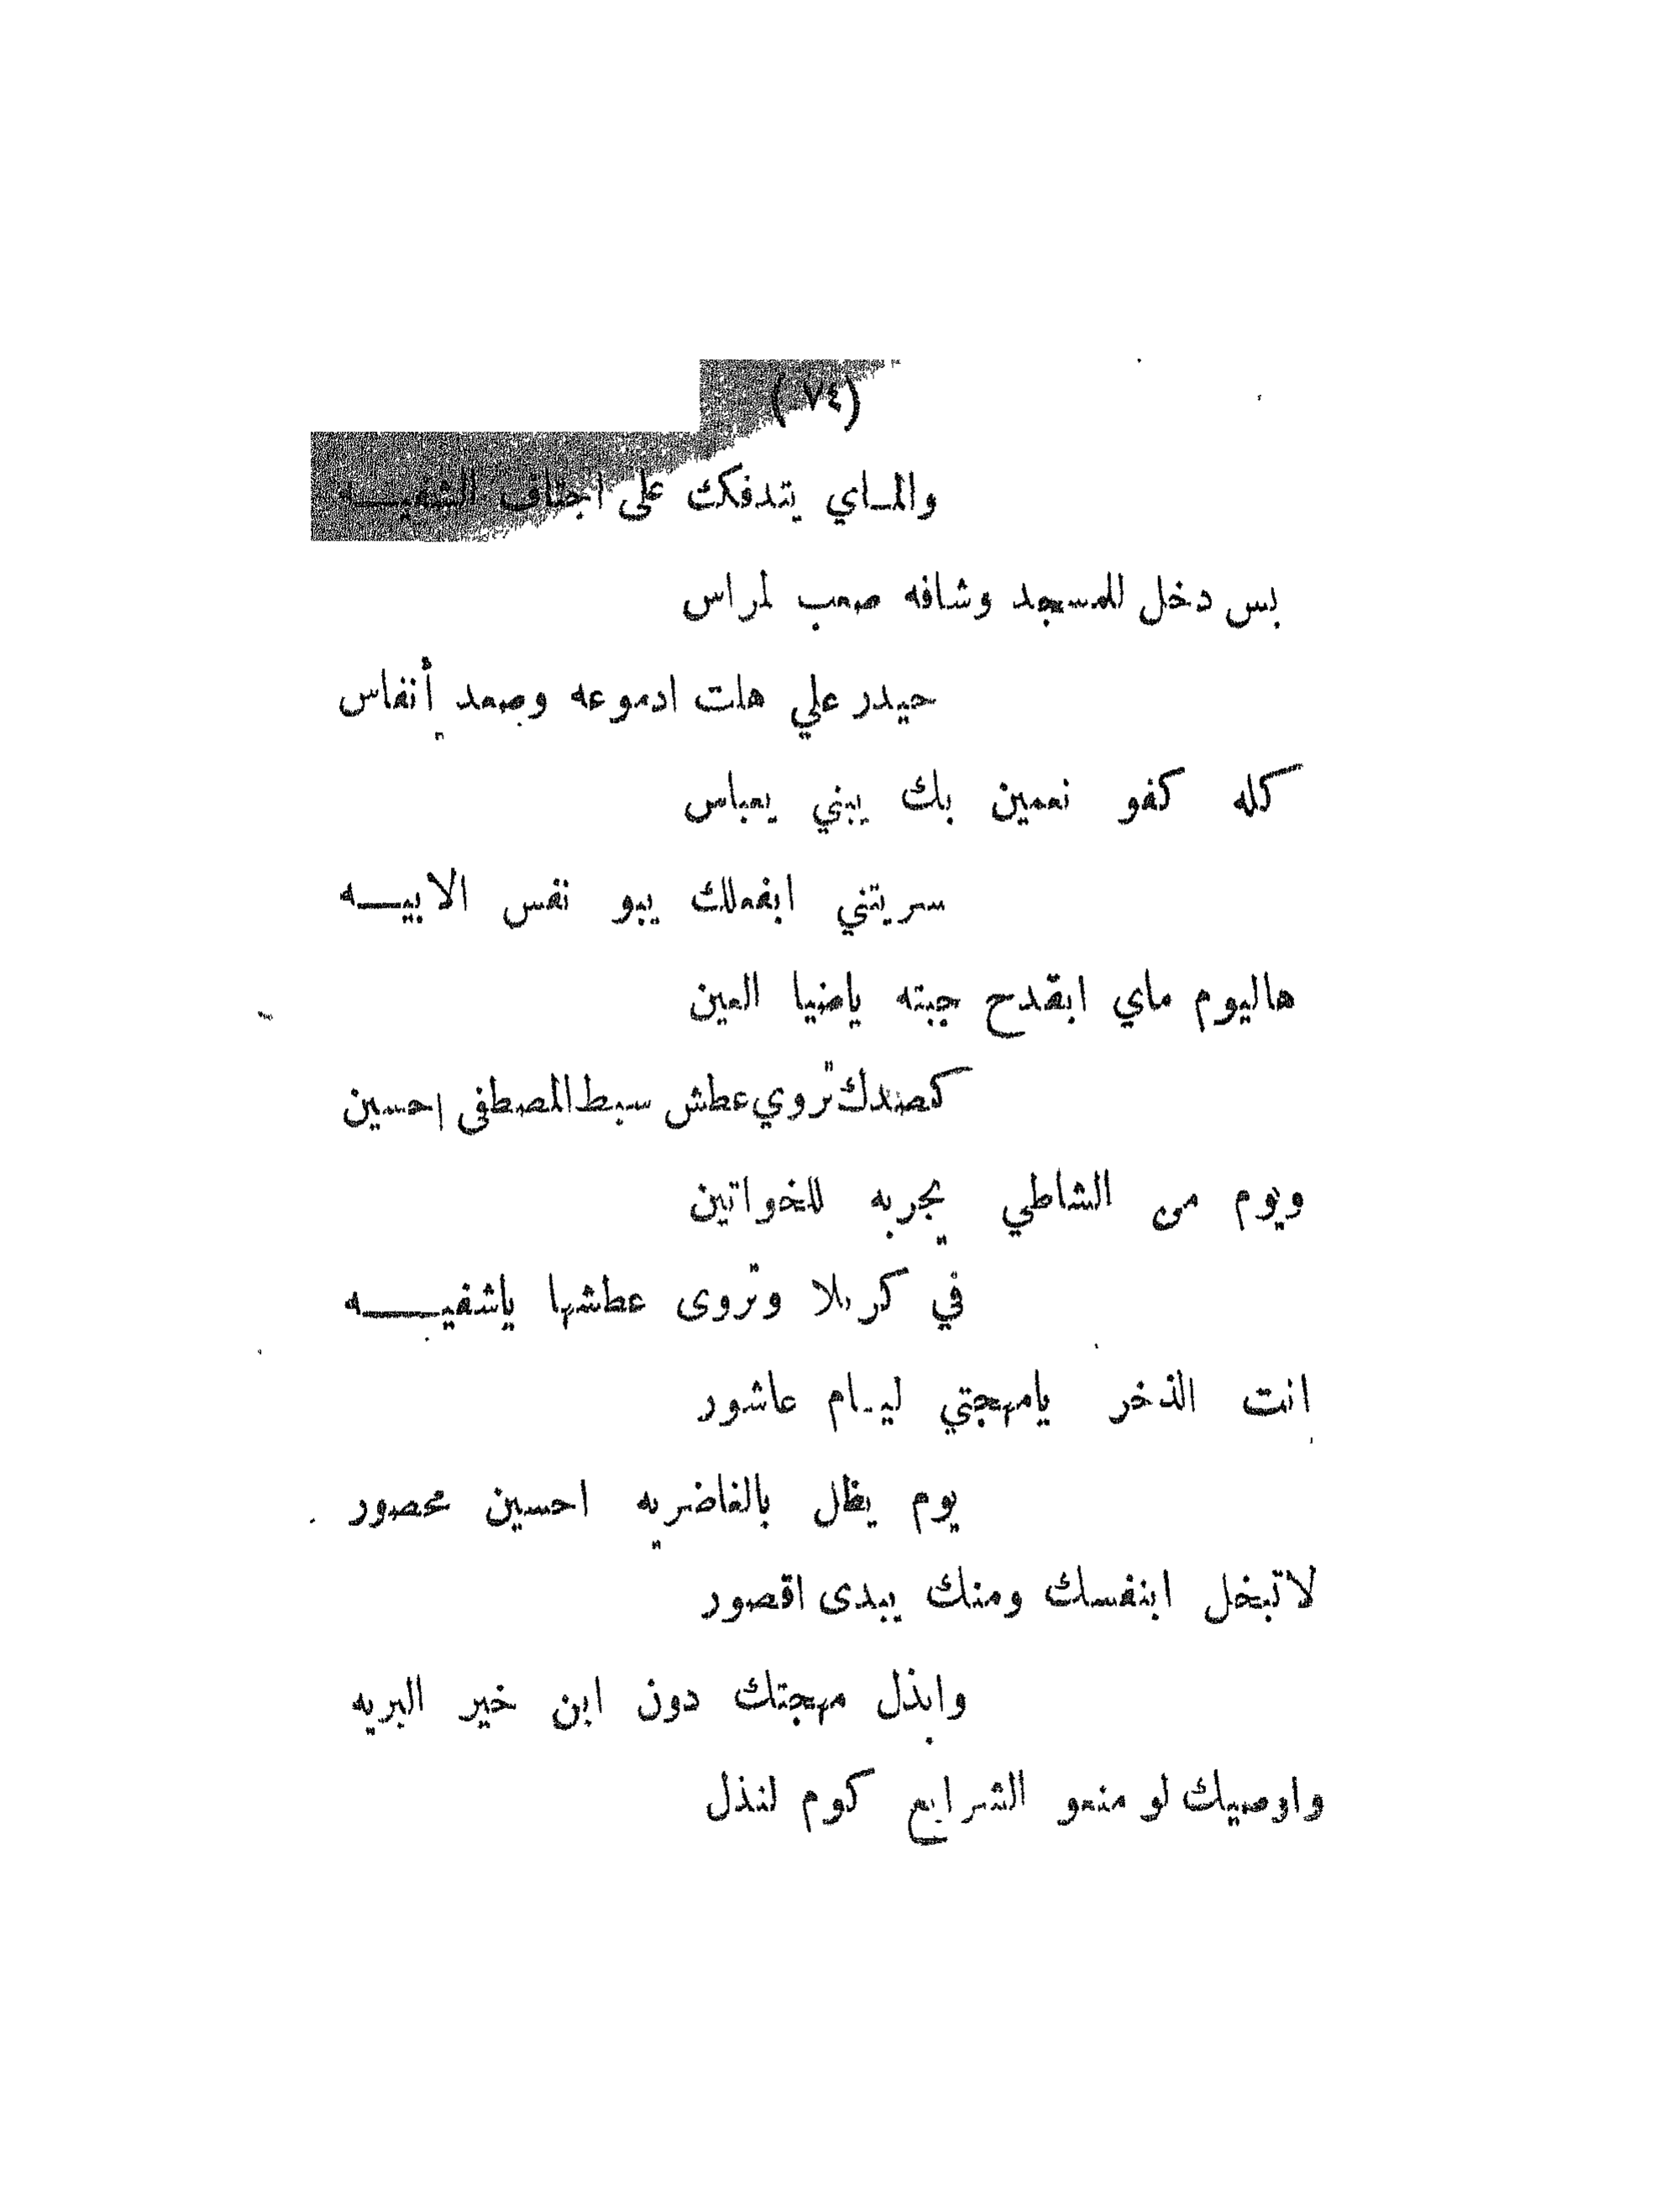 (٧٤)
والمـاي يتدفكك على اجتاف الشفيـــه
بس دخل للمسجد وشافه صعب لمراس
حيدر علي هلت ادموعه وصعد أنفاس
كله كفو نعمين بك يبني يعباس
سريتني ابفعلك يبو نفس الابيـــه
هاليوم ماي ابقدح جبته ياضيا العين
كصدك تروي عطش سبط المصطفى احسين
ويوم من الشاطي يجربه للخواتين
في كربلا وتروى عطشها ياشفيـــه
انت الذخر يامهجتي ليـام عاشور
يوم يظل بالغاضريه احسين محصور
لاتبخل ابنفسك ومنك يبدى اقصور
وابذل مهجتك دون ابن خير البريه
واوصيك لو منعو الشرايع كوم لنذل